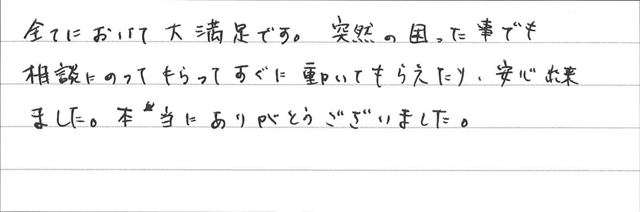 全てにおいて大満足です。突然の困った事でも
相談にのってもらってすぐに動いてもらえたり、安心出来
ました。本当にありがとうございました。